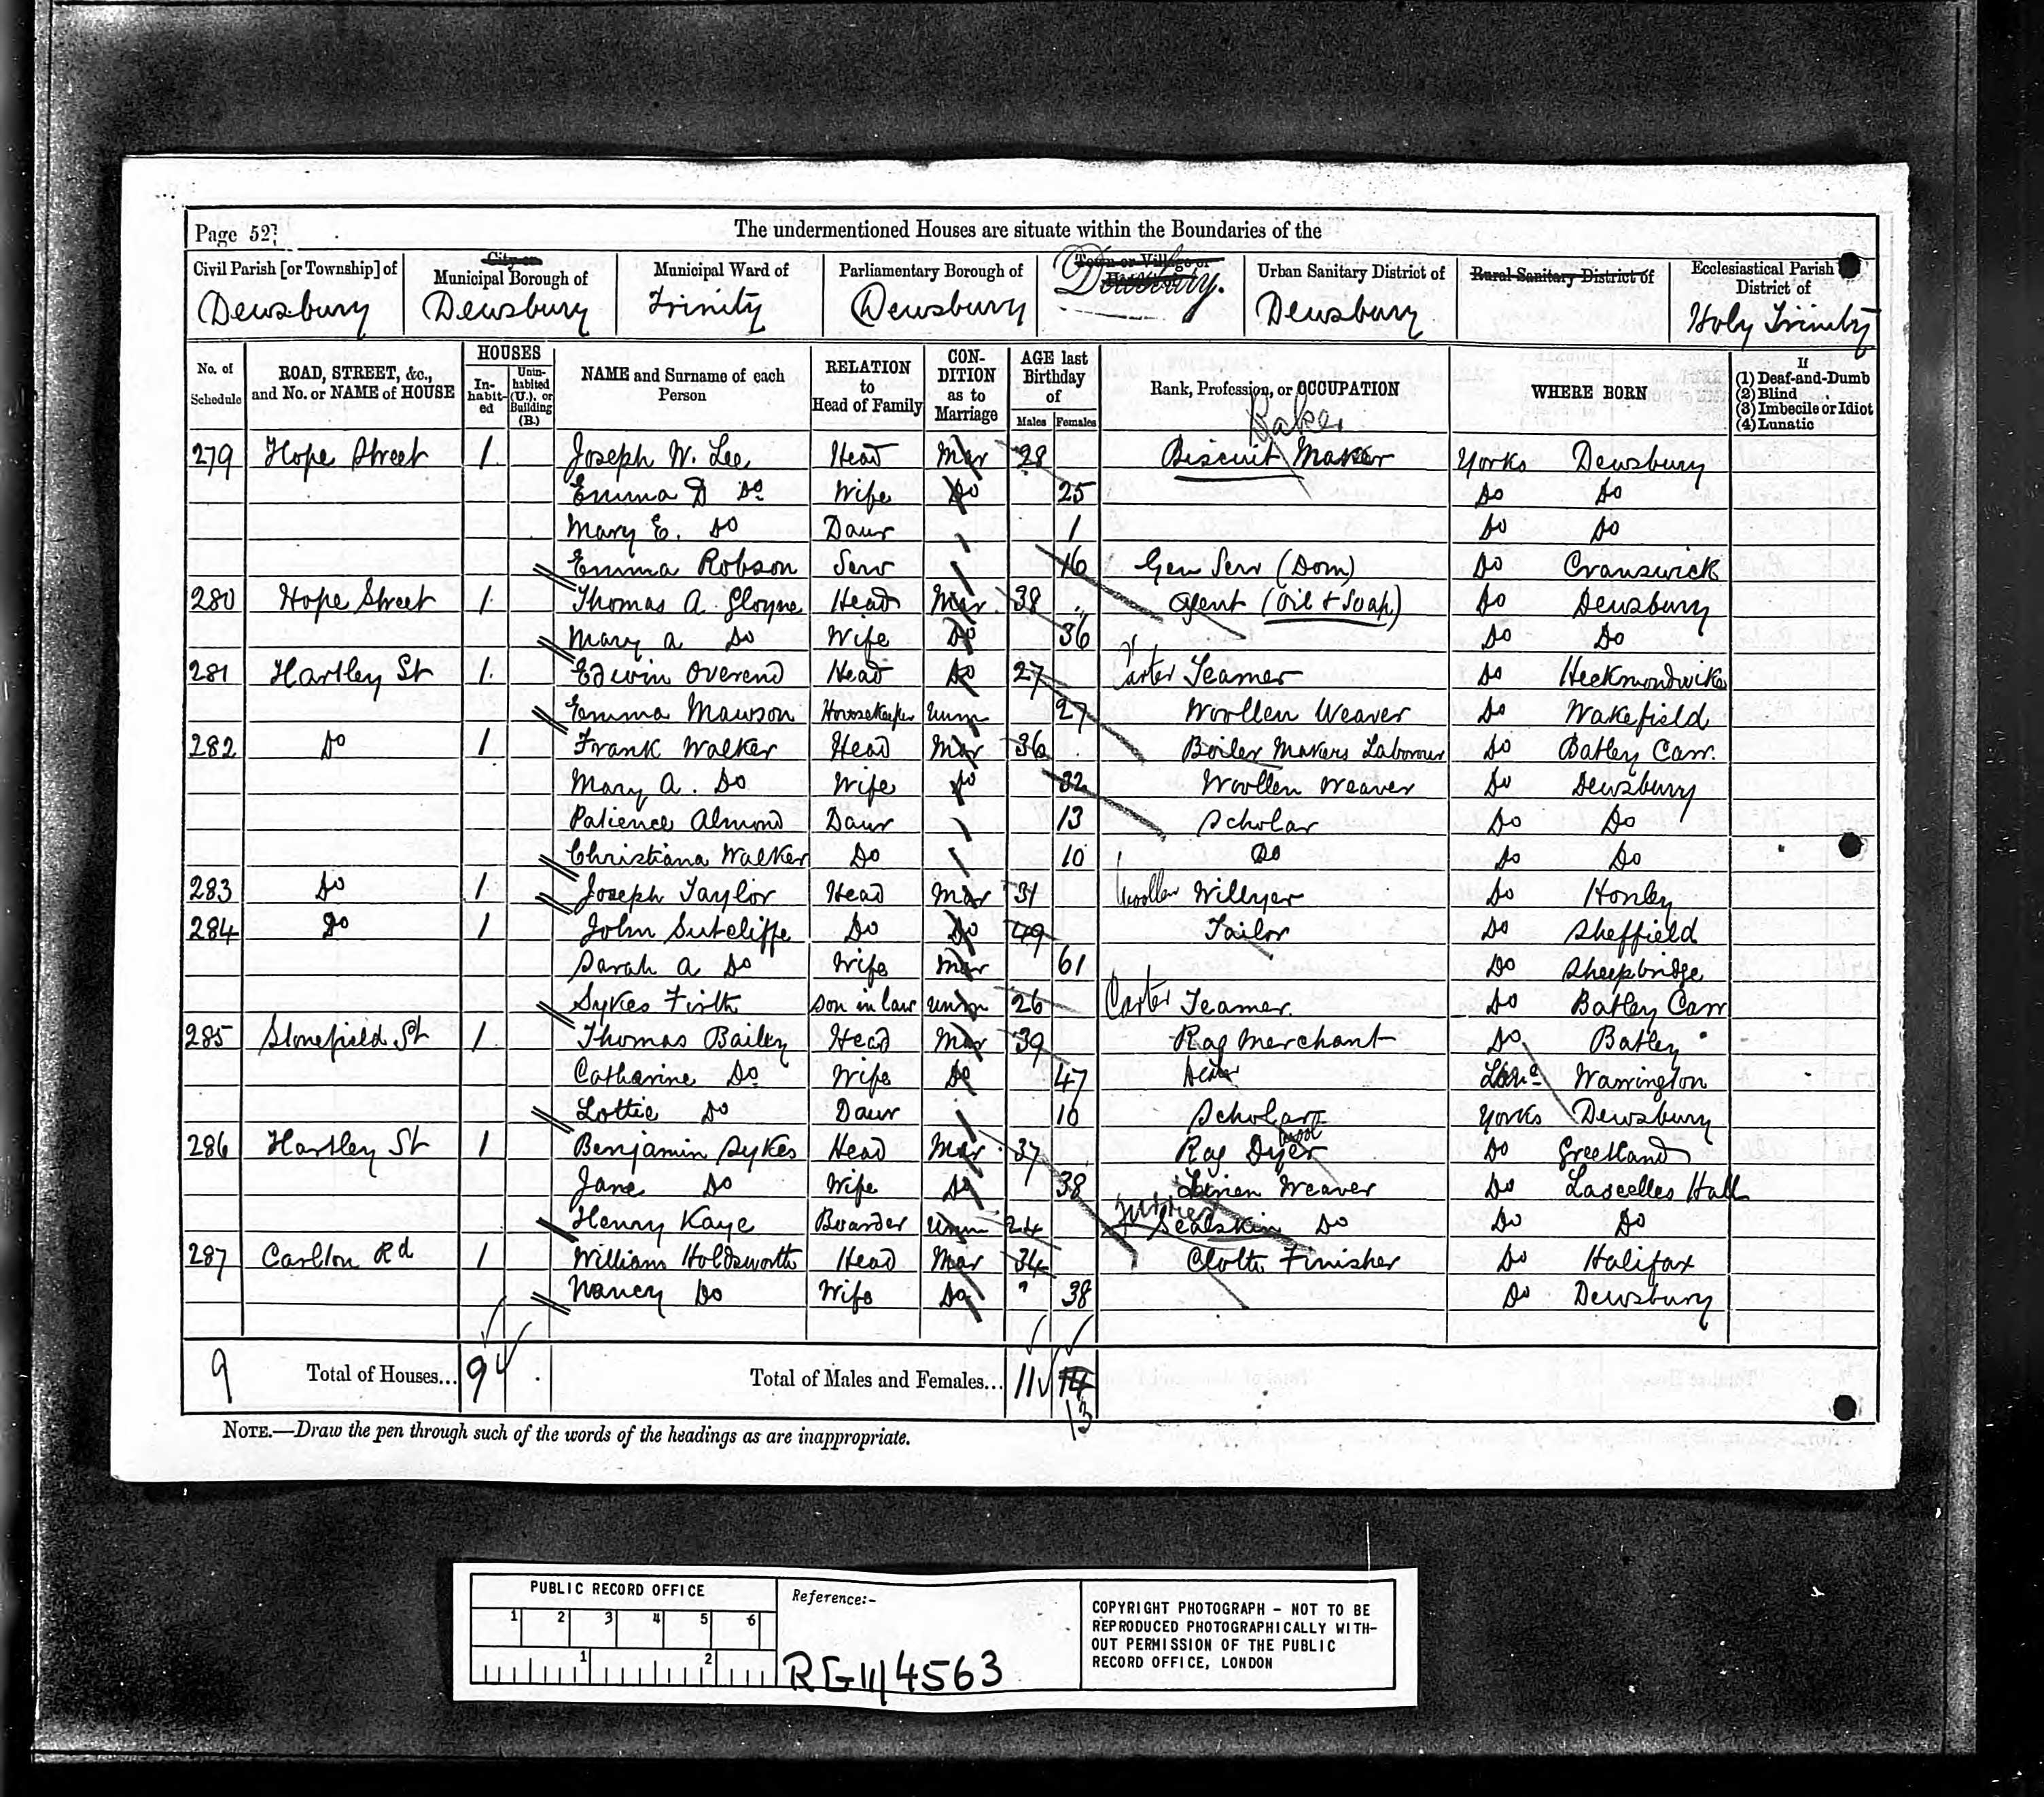 Page 52
The undermentioned Houses are situate within the Boundaries of the
Civil Parish [or Township] of
City or Municipal Borough of
Municipal Ward of
Parliamentary Borough of
Town or Village or
Urban Sanitary District of
Rural Sanitary District of
Ecclesiastical Parish District of
Dewsbury Dewsbury Trinity Dewsbury Dewsbury. Dewsbury Holy Trinity
No. of Schedule
ROAD, STREET, &c., and No. or NAME of HOUSE
HOUSES
In-habit-ed
Unin-habited (U.), or Building (B.)
NAME and Surname of each Person
RELATION to Head of Family
CON-DITION as to Marriage
AGE last Birthday of
Males Females
Rank, Profession, or OCCUPATION
WHERE BORN
If
(1) Deaf-and-Dumb
(2) Blind
(3) Imbecile or Idiot
(4) Lunatic
Baker
279 Hope Street 1 Joseph W. Lee Head Mar 28 Biscuit Maker Yorks Dewsbury
Emma D Do Wife Do 25 Do Do
Mary E. Do Daur 1 Do Do
Emma Robson Serv 16 Gen Serv (Dom) Do Cranswick
280 Hope Street 1 Thomas A. Gloyne Head Mar 38 Agent (Oil & Soap) Do Dewsbury
Mary A Do Wife Do 36 Do Do
281 Hartley St 1 Edwin Overend Head Do 27 Carter Teamer Do Heckmondwike
Emma Mawson Housekeeper Unm 27 Woollen Weaver Do Wakefield
282 Do 1 Frank Walker Head Mar 36 Boiler Makers Labourer Do Batley Carr.
Mary A. Do Wife Do 32 Woollen Weaver Do Dewsbury
Patience Almond Daur 13 Scholar Do Do
Christiana Walker Do 10 Do Do Do
283 Do 1 Joseph Taylor Head Mar 31 Woollen Willyer Do Honley
284 Do 1 John Sutcliffe Do Do 49 Tailor Do Sheffield
Sarah A Do Wife Mar 61 Do Sheepbridge
Sykes Firth Son in law Unm 26 Carter Teamer Do Batley Carr
285 Stonefield St 1 Thomas Bailey Head Mar 39 Rag Merchant Do Batley
Catharine Do Wife Do 47 Lanc Warrington
Lottie Do Daur 10 Scholar Yorks Dewsbury
286 Hartley St 1 Benjamin Sykes Head Mar 37 Rag Dyer Wool Do Greetland
Jane Do Wife Do 38 Linen Weaver Do Lascelles Hall
Henry Kaye Boarder Unm 24 Sealskin Do Do Do
287 Carlton Rd 1 William Holdsworth Head Mar 34 Cloth Finisher Do Halifax
Nancy Do Wife Do 38 Do Dewsbury
9 Total of Houses... 9 Total of Males and Females... 11 14
13
NOTE.—Draw the pen through such of the words of the headings as are inappropriate.
PUBLIC RECORD OFFICE
1 2 3 4 5 6
1 2
Reference:-
RG11/4563
COPYRIGHT PHOTOGRAPH - NOT TO BE
REPRODUCED PHOTOGRAPHICALLY WITH-
OUT PERMISSION OF THE PUBLIC
RECORD OFFICE, LONDON